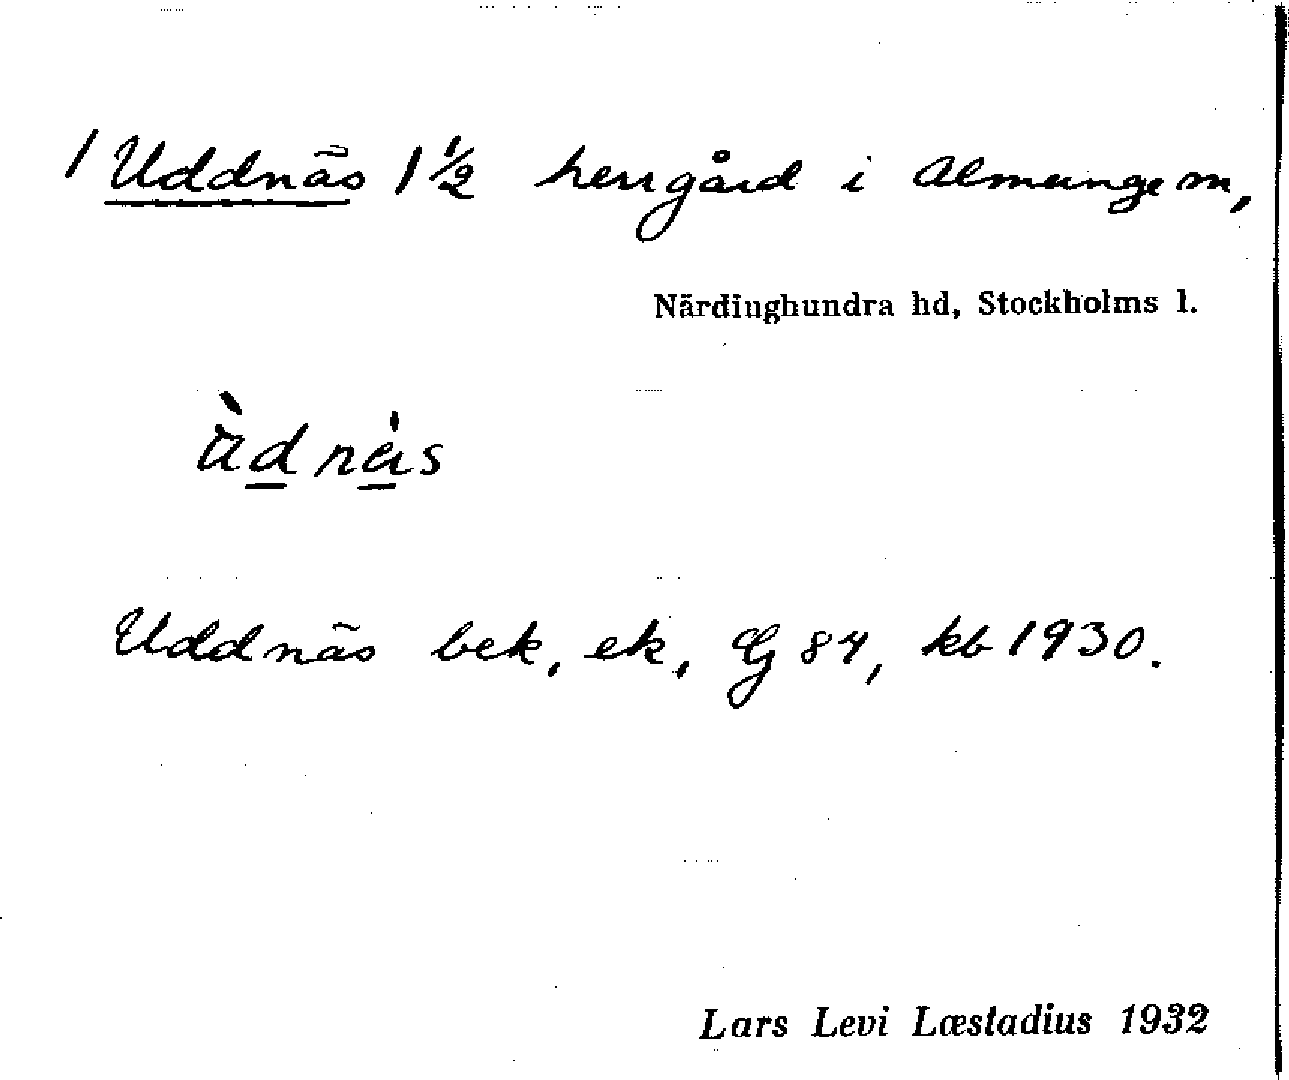 / Uddnäs 1 ½ herrgård i Almunge sn,
Närdinghundra hd, Stockholms l.
ùdnàs
Uddnäs bek, ek, GG 84, kb 1930.
Lars Levi Læstadius 1932